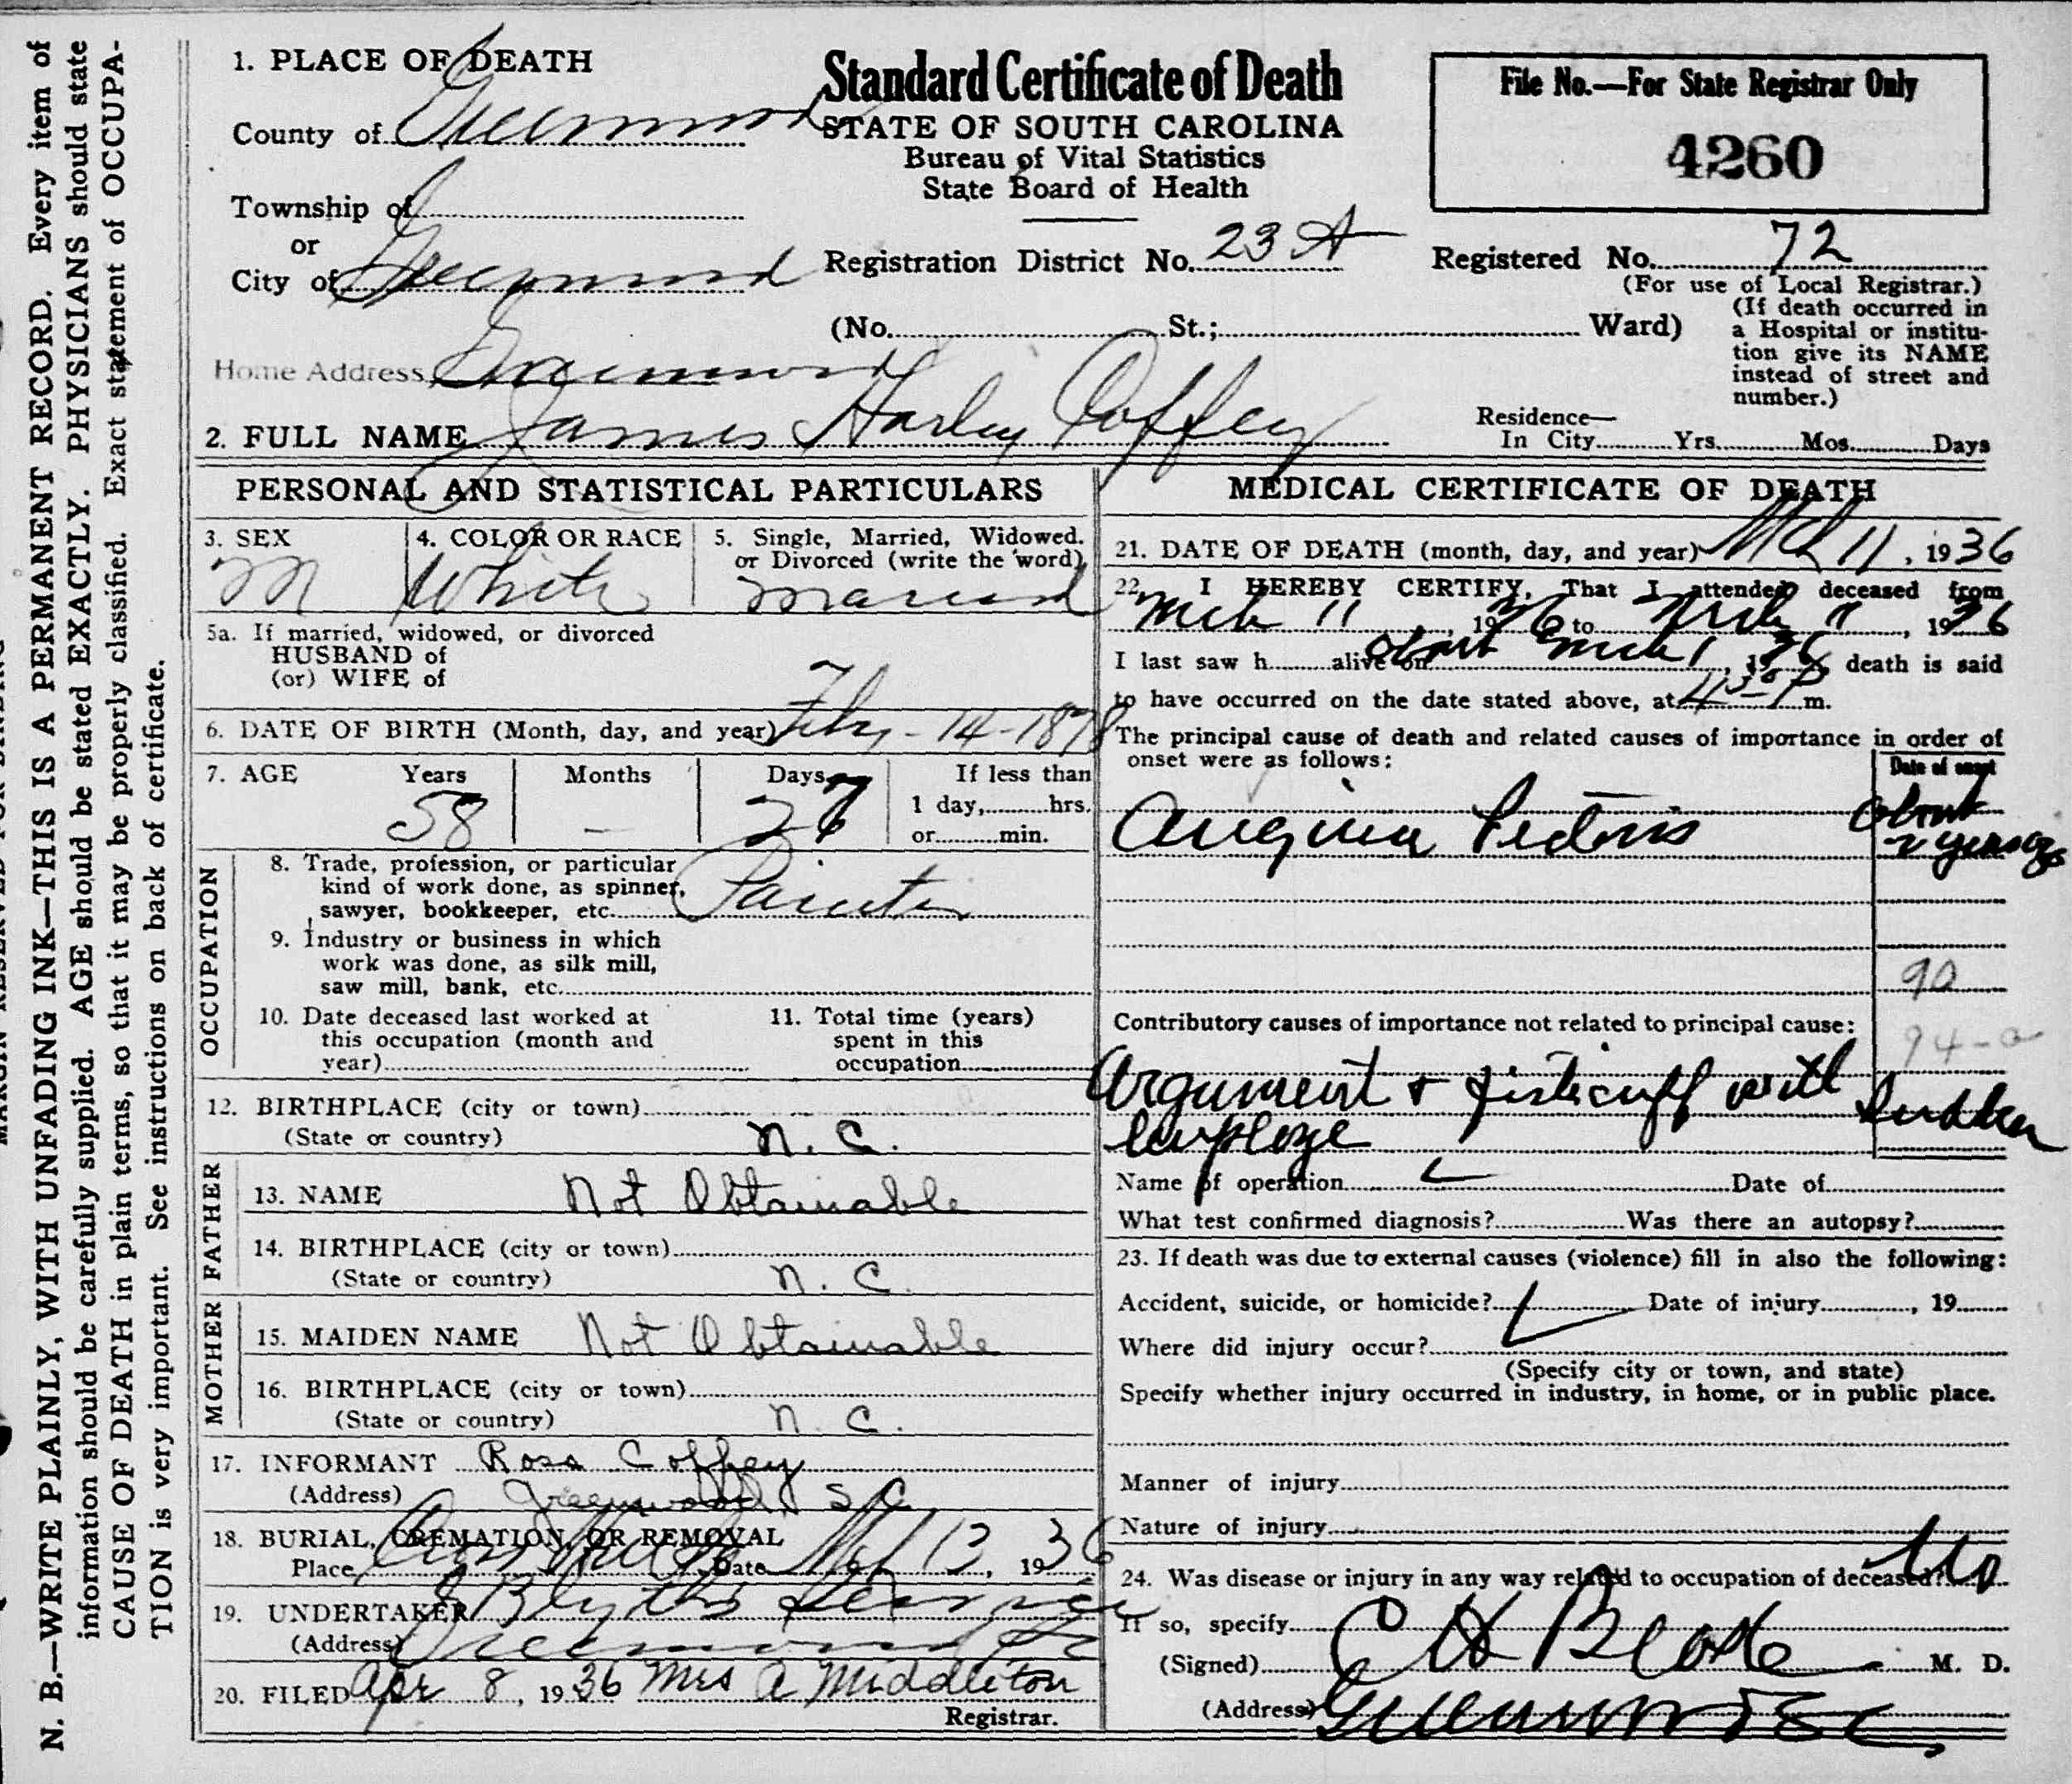 N. B.—WRITE PLAINLY, WITH UNFADING INK—THIS IS A PERMANENT RECORD. Every item of
information should be carefully supplied. AGE should be stated EXACTLY. PHYSICIANS should state
CAUSE OF DEATH in plain terms, so that it may be properly classified. Exact statement of OCCUPA-
TION is very important. See instructions on back of certificate.
1. PLACE OF DEATH
County of Greenwood
Township of
or
City of Greenwood
Home Address Greenwood
Standard Certificate of Death
STATE OF SOUTH CAROLINA
Bureau of Vital Statistics
State Board of Health
Registration District No. 23 A
(No. St.; Ward)
File No.—For State Registrar Only
4260
Registered No. 72
(For use of Local Registrar.)
(If death occurred in
a Hospital or institu-
tion give its NAME
instead of street and
number.)
2. FULL NAME James Harley Coffey
Residence—
In City Yrs. Mos. Days
PERSONAL AND STATISTICAL PARTICULARS
3. SEX
M
4. COLOR OR RACE
White
5. Single, Married, Widowed.
or Divorced (write the word)
Married
5a. If married, widowed, or divorced
HUSBAND of
(or) WIFE of
6. DATE OF BIRTH (Month, day, and year) Feby - 14 - 1878
7. AGE Years Months Days If less than
58 — 27 1 day, hrs.
or min.
OCCUPATION
8. Trade, profession, or particular
kind of work done, as spinner,
sawyer, bookkeeper, etc. Painter
9. Industry or business in which
work was done, as silk mill,
saw mill, bank, etc.
10. Date deceased last worked at
this occupation (month and
year)
11. Total time (years)
spent in this
occupation
12. BIRTHPLACE (city or town)
(State or country) N. C.
FATHER
13. NAME Not Obtainable
14. BIRTHPLACE (city or town)
(State or country) N. C.
MOTHER
15. MAIDEN NAME Not Obtainable
16. BIRTHPLACE (city or town)
(State or country) N. C.
17. INFORMANT Ross Coffey
(Address) Greenwood S C
18. BURIAL, CREMATION, OR REMOVAL
Place Date Mch 13, 1936
19. UNDERTAKER Blyths
(Address) Greenwood SC
20. FILED Apr 8, 1936 Mrs A Middleton
Registrar.
MEDICAL CERTIFICATE OF DEATH
21. DATE OF DEATH (month, day, and year) Mch 11, 1936
22. I HEREBY CERTIFY, That I attended deceased from
Mch 11, 1936 to Mch 11, 1936
I last saw h alive on about Mch 1, 1936 death is said
to have occurred on the date stated above, at 4 30 P m.
The principal cause of death and related causes of importance in order of
onset were as follows:
Date of onset
Angina Pectoris about
2 years ago
90
94-a
Contributory causes of importance not related to principal cause:
Argument & fisticuff with Sudden
employe
Name of operation Date of
What test confirmed diagnosis? Was there an autopsy?
23. If death was due to external causes (violence) fill in also the following:
Accident, suicide, or homicide? Date of injury , 19
Where did injury occur?
(Specify city or town, and state)
Specify whether injury occurred in industry, in home, or in public place.
Manner of injury
Nature of injury
24. Was disease or injury in any way related to occupation of deceased? No
If so, specify
(Signed) C H Blake M. D.
(Address) Greenwood S C